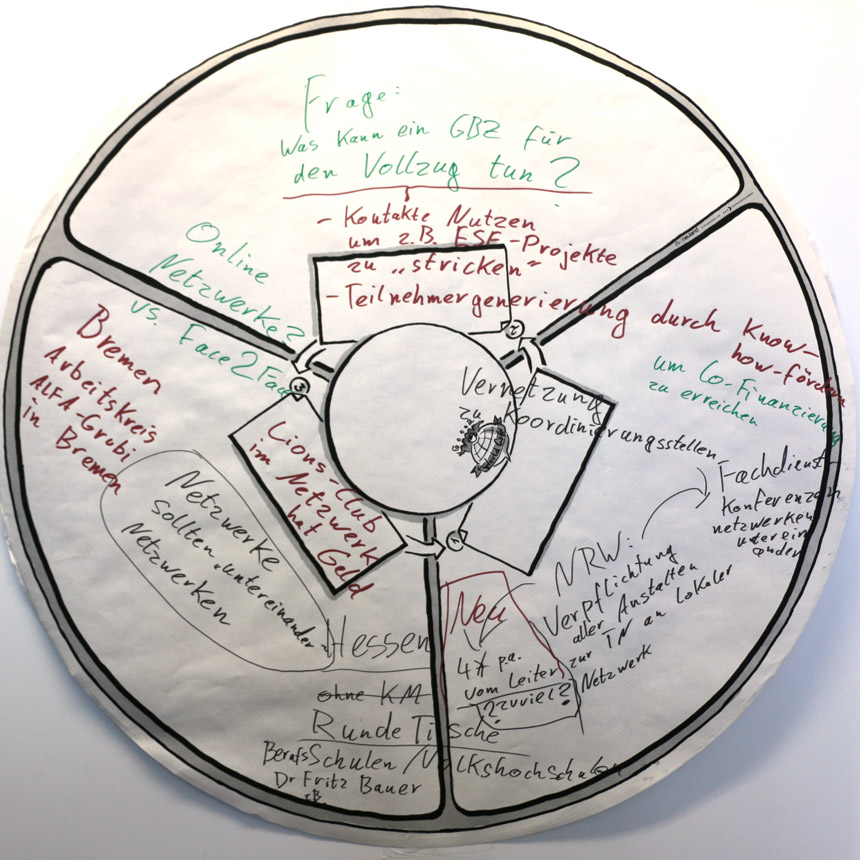 Frage:
Was kann ein GBZ für
den Vollzug tun?
- Kontakte Nutzen
um z.B. ESF-Projekte
zu „stricken“
- Teilnehmergenerierung durch Know-
how-fördern
um Co-Finanzierung
zu erreichen
Online
Netzwerke?
vs. Face2Face
2
3
1
Bremen
Arbeitskreis
ALFA-Grubi
in Bremen
Lions-Club
im Netzwerk
hat Geld
Netzwerke
sollten untereinander
Netzwerken
Hessen
ohne KM
Runde Tische
BerufsSchulen / Volkshochschulen
Dr Fritz Bauer
z.B.
Vernetzung
zu Koordinierungsstellen
Fachdienst-
Konferenzen
netzwerken
unterein
ander
NRW:
Verpflichtung
aller Anstalten
zur TN an lokaler
Netzwerk
Neu
4* p.a.
vom Leiter
?zuviel?